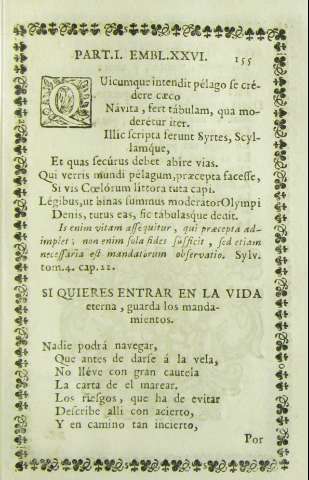 PART.I. EMBL.XXVI. 155
QUicumque intendit pélago se cré-
dere cæco
Návita, fert tábulam, qua mo-
deretur iter.
Illic scripta ferunt Syrtes, Scyl-
lamque,
Et quas secúrus debet abire vias.
Qui verris mundi pelagum, præcepta facesse,
Si vis Cœlórum littora tuta capi.
Légibus, ut binas summus moderator Olympi
Denis, tutus eas, sic tábulasque dedit.
Is enim vitam assequitur, qui præcepta ad-
implet; non enim sola fides sufficit, sed etiam
necessaria est mandatorum observatio. Sylv.
tom.4. cap.22.
SI QUIERES ENTRAR EN LA VIDA
eterna, guarda los manda-
mientos.
Nadie podrá navegar,
Que antes de darse á la vela,
No lléve con gran cautela
La carta de el marear.
Los riesgos, que ha de evitar
Describe alli con acierto,
Y en camino tan incierto,
Por